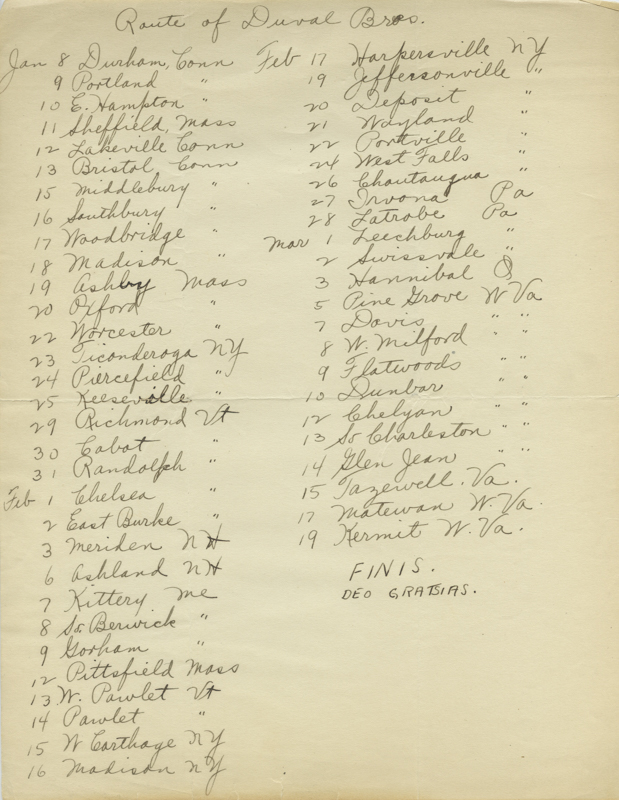 Route of Duval Bros.
Jan 8 Durham, Conn
9 Portland "
10 E. Hampton "
11 Sheffield, Mass
12 Lakeville Conn
13 Bristol Conn
15 Middlebury "
16 Southbury "
17 Woodbridge "
18 Madison "
19 Ashby Mass
20 Oxford "
22 Worcester "
23 Ticonderoga NY
24 Piercefield "
25 Keeseville "
29 Richmond Vt
30 Cabot "
31 Randolph "
Feb 1 Chelsea "
2 East Burke "
3 Meriden NH
6 Ashland NH
7 Kittery Me
8 So. Berwick "
9 Gorham "
12 Pittsfield Mass
13 W. Pawlet Vt
14 Pawlet "
15 W Carthage NY
16 Madison NY
Feb 17 Harpersville NY
19 Jeffersonville "
20 Deposit "
21 Wayland "
22 Portville "
24 West Falls "
26 Chautauqua "
27 Irvona Pa
28 Latrobe Pa
Mar 1 Leechburg "
2 Swissvale "
3 Hannibal O
5 Pine Grove W Va
7 Davis " "
8 W. Milford " "
9 Flatwoods " "
10 Dunbar " "
12 Chelyan " "
13 So Charleston " "
14 Glen Jean " "
15 Tazewell. Va.
17 Matewan W. Va.
19 Kermit W. Va.
FINIS.
DEO GRATSIAS.